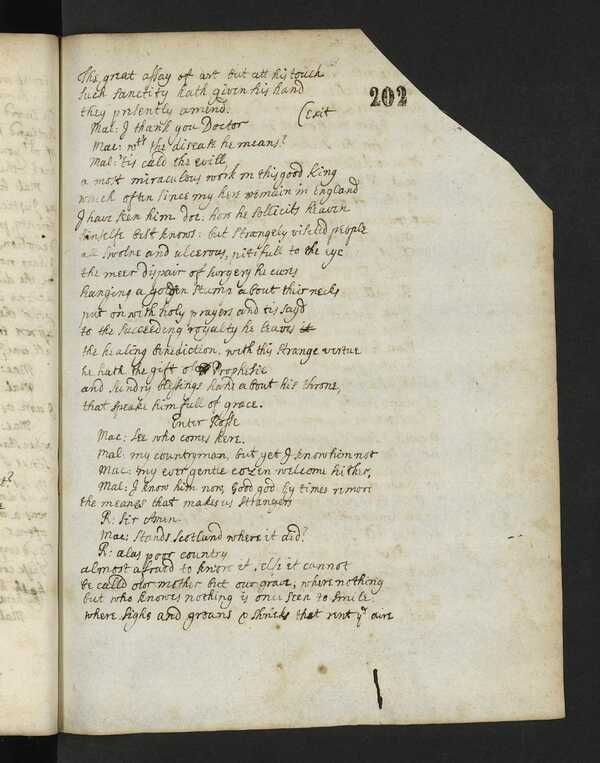 The great assay of art but att his touch
such sanctity hath given his hand
202
they presently amend. (Exit
Mal: I thank you Doctor
Mac: wts the disease he means?
Mal: 'tis cald the evill,
a most miraculous work in this good king
which often since my here remain in England
I have seen him doe: how he sollicits heaven
himselfe best knows: but strangely visited people
all swolne and ulcerous, pitifull to the eye
the meer dispair of surgery he cures
hanging a golden stamp about their necks
put on with holy prayers and tis sayd
to the succeeding royalty he leaves
the healing benediction. with this strange virtue
he hath the gift of Prophesie
and sundry blessings hang about his throne,
that speake him full of grace.
Enter Rosse
Mac: see who comes here.
Mal: my countryman, but yet I know him not
Mac: my ever gentle cozen welcome hither,
Mal: I know him now, Good god by times remove
the meanes that makes us strangers
R: Sir Amen.
Mac: Stands Scotland where it did?
R: alas poor country
almost afraid to know it self it cannot
be calld our mother but our grave; where nothing
but who knowes nothing is once seen to smile:
where sighs and groans & shrieks that rent ye aire